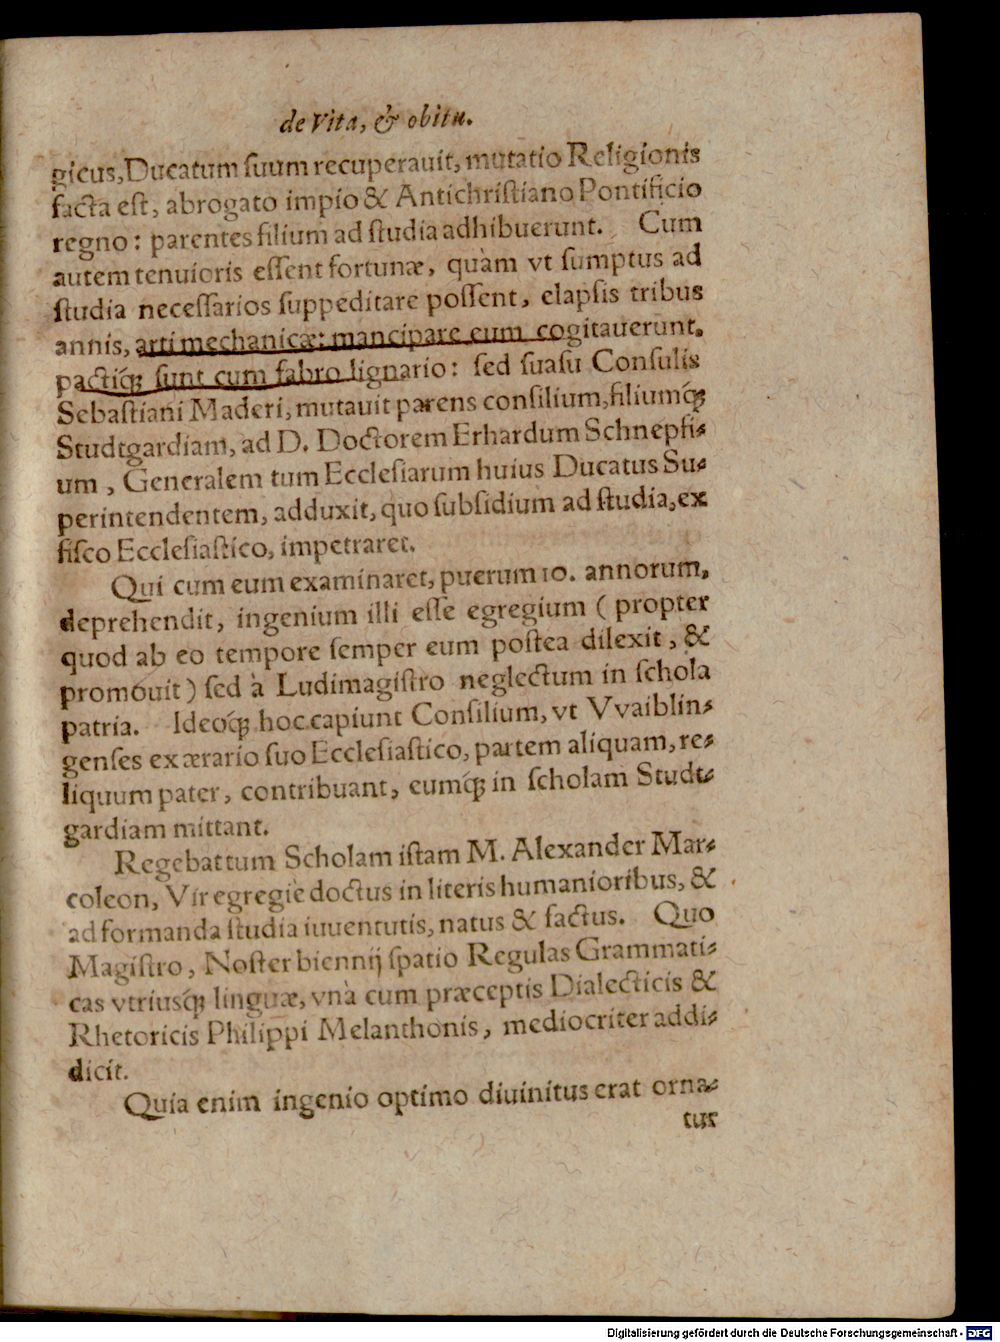 de Vita, & obitu.
gicus, Ducatum ſuum recuperauit, mutatio Religionis
facta eſt, abrogato impio & Antichriſtiano Pontificio
regno: parentes filium ad ſtudia adhibuerunt. Cum
autem tenuioris eſſent fortunæ, quàm vt ſumptus ad
ſtudia neceſſarios ſuppeditare poſſent, elapſis tribus
annis, arti mechanicæ: mancipare eum cogitauerunt.
pactiq́; sunt cum fabro lignario: ſed ſuaſu Conſulis
Sebaſtiani Maderi, mutauit parens conſilium, filiumq́;
Studtgardiam, ad D. Doctorem Erhardum Schnepfi-
um, Generalem tum Eccleſiarum huius Ducatus Su-
perintendentem, adduxit, quo ſubſidium ad ſtudia, ex
fiſco Eccleſiaſtico, impetraret.
Qui cum eum examinaret, puerum 10. annorum,
deprehendit, ingenium illi eſſe egregium (propter
quod ab eo tempore ſemper eum poſtea dilexit, &
promouit) ſed à Ludimagiſtro neglectum in ſchola
patria. Ideoq́; hoc capiunt Conſilium, vt VVaiblin-
genſes ex ærario ſuo Eccleſiaſtico, partem aliquam, re-
liquum pater, contribuant, eumq́; in ſcholam Studt-
gardiam mittant.
Regebat tum Scholam iſtam M. Alexander Mar-
coleon, Vir egregiè doctus in literis humanioribus, &
ad formanda ſtudia iuuentutis, natus & factus. Quo
Magiſtro, Noſter biennij ſpatio Regulas Grammati-
cas vtriusq́; linguæ, vnà cum præceptis Dialecticis &
Rhetoricis Philippi Melanthonis, mediocriter addi-
dicit.
Quia enim ingenio optimo diuinitus erat orna-
tus
Digitalisierung gefördert durch die Deutsche Forschungsgemeinschaft - DFG